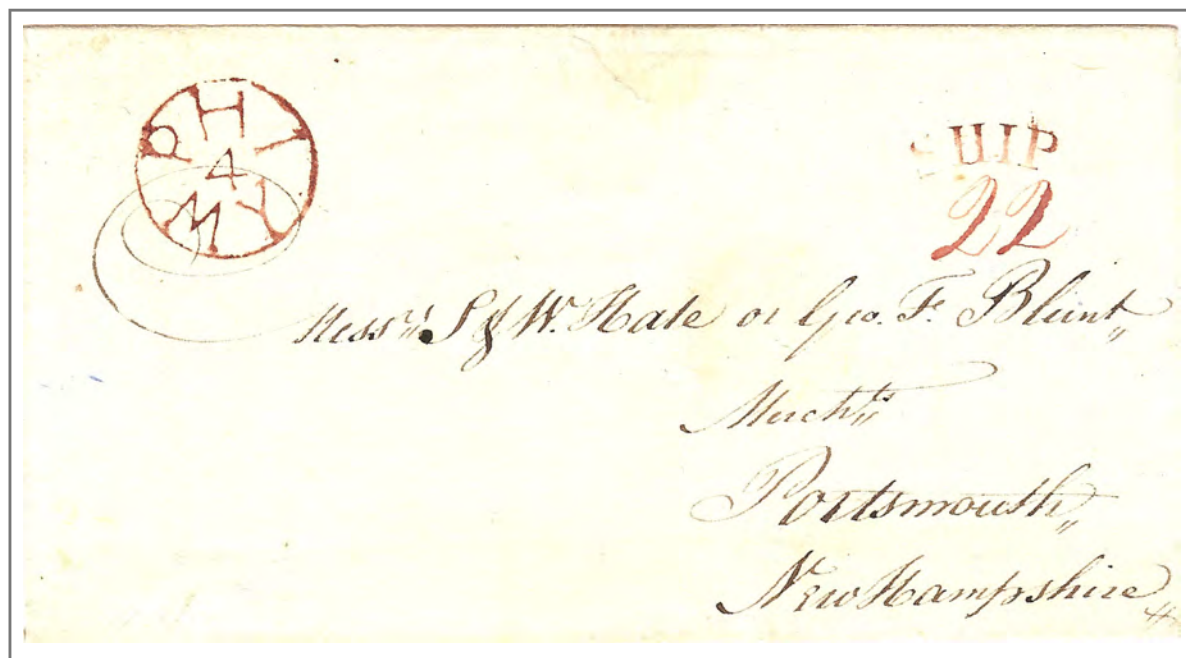 PHI
4
MY
SHIP
22
Messrs. S & W. Hale or Geo. F. Blunt
Mercht's
Portsmouth
New Hampshire